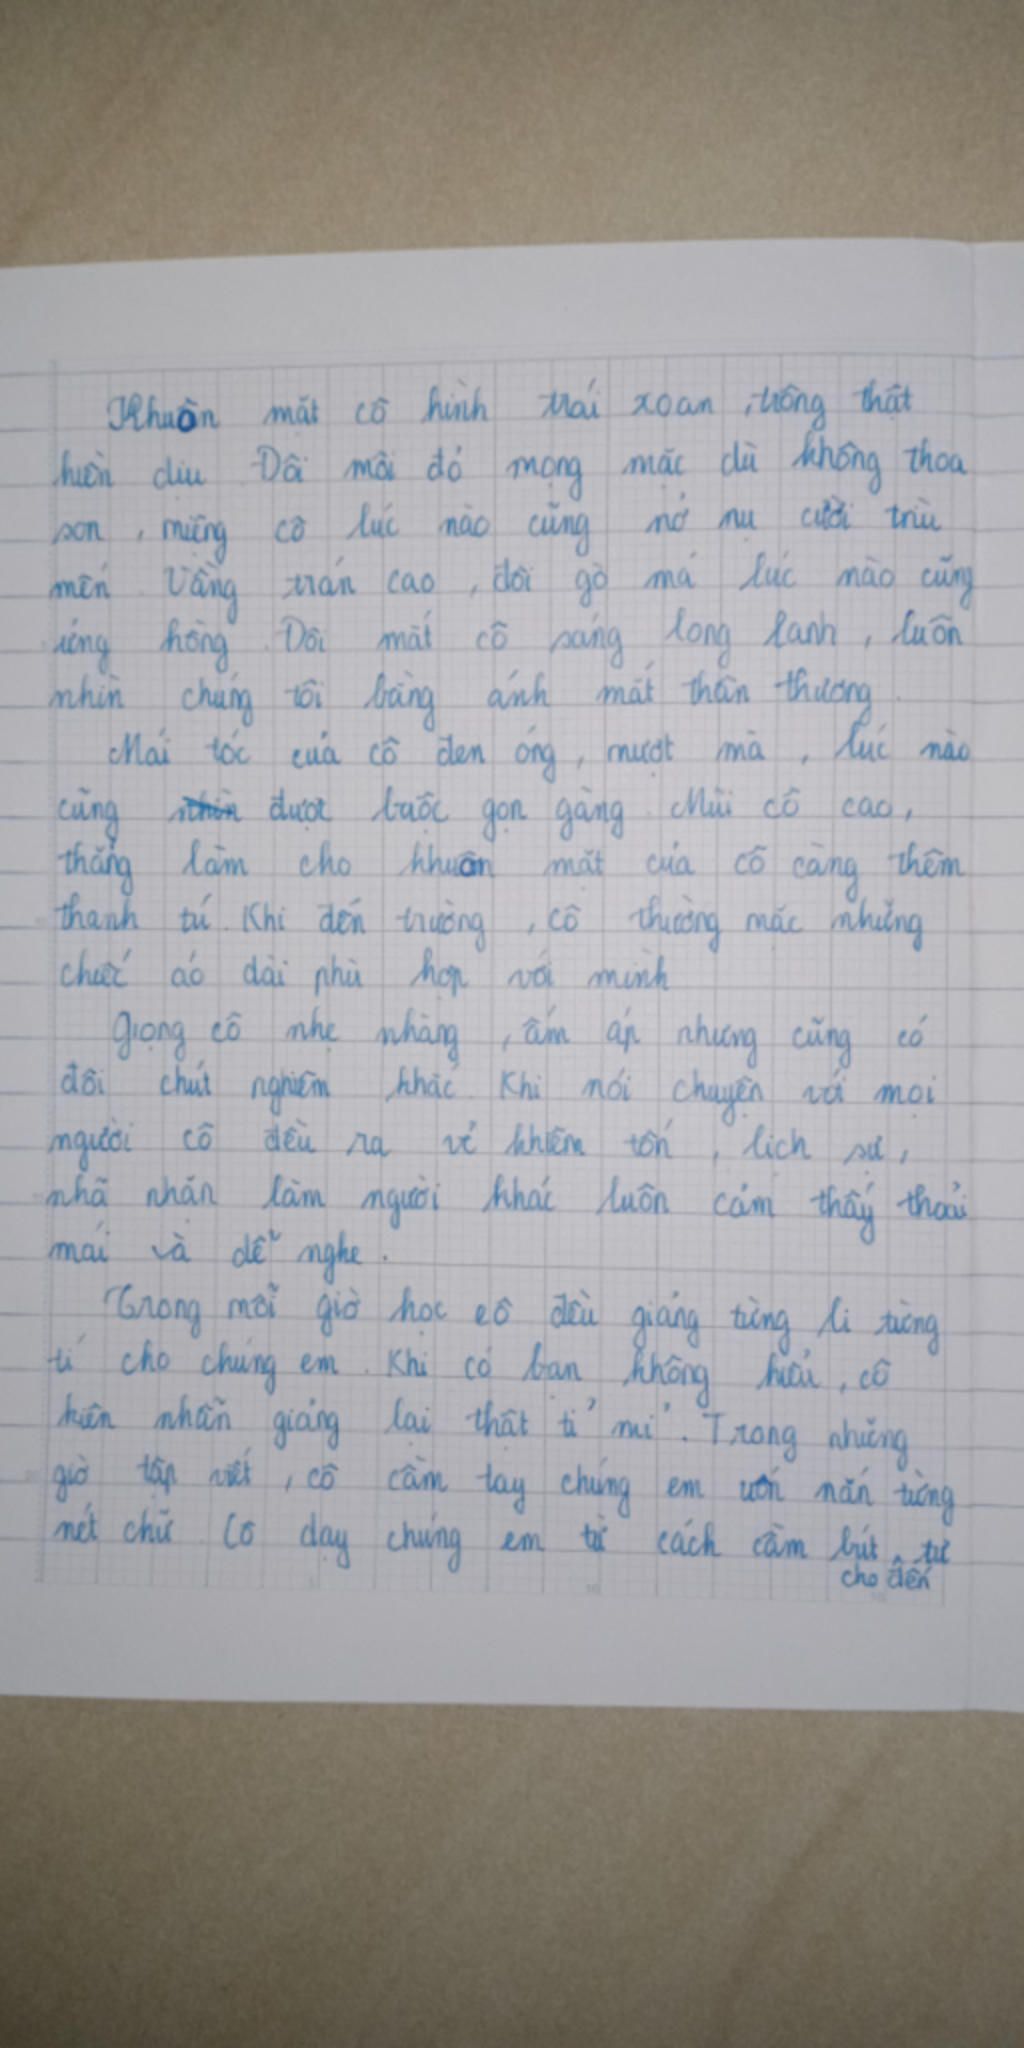 Khuôn mặt cô hình trái xoan, trông thật
hiền dịu. Đôi môi đỏ mọng mặc dù không thoa
son, miệng cô lúc nào cũng nở nụ cười trìu
mến. Vầng trán cao, đôi gò má lúc nào cũng
ửng hồng. Đôi mắt cô sáng long lanh, luôn
nhìn chúng tôi bằng ánh mắt thân thương.
Mái tóc của cô đen óng, mượt mà, lúc nào
cũng nhìn được buộc gọn gàng. Mũi cô cao,
thẳng làm cho khuôn mặt của cô càng thêm
thanh tú. Khi đến trường, cô thường mặc những
chiếc áo dài phù hợp với mình
Giọng cô nhẹ nhàng, ấm áp nhưng cũng có
đôi chút nghiêm khắc. Khi nói chuyện với mọi
người cô đều ra vẻ khiêm tốn, lịch sự,
nhã nhặn làm người khác luôn cảm thấy thoải
mái và dễ nghe.
Trong mỗi giờ học cô đều giảng từng li từng
tí cho chúng em. Khi có bạn không hiểu, cô
kiên nhẫn giảng lại thật tỉ mỉ. Trong những
giờ tập viết, cô cầm tay chúng em uốn nắn từng
nét chữ. Cô dạy chúng em từ cách cầm bút, tư
cho đến